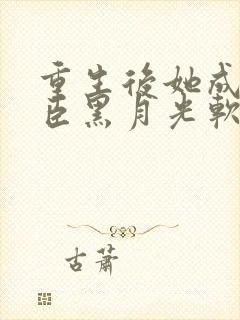 重生後她成
臣黑月光軟
古蕭